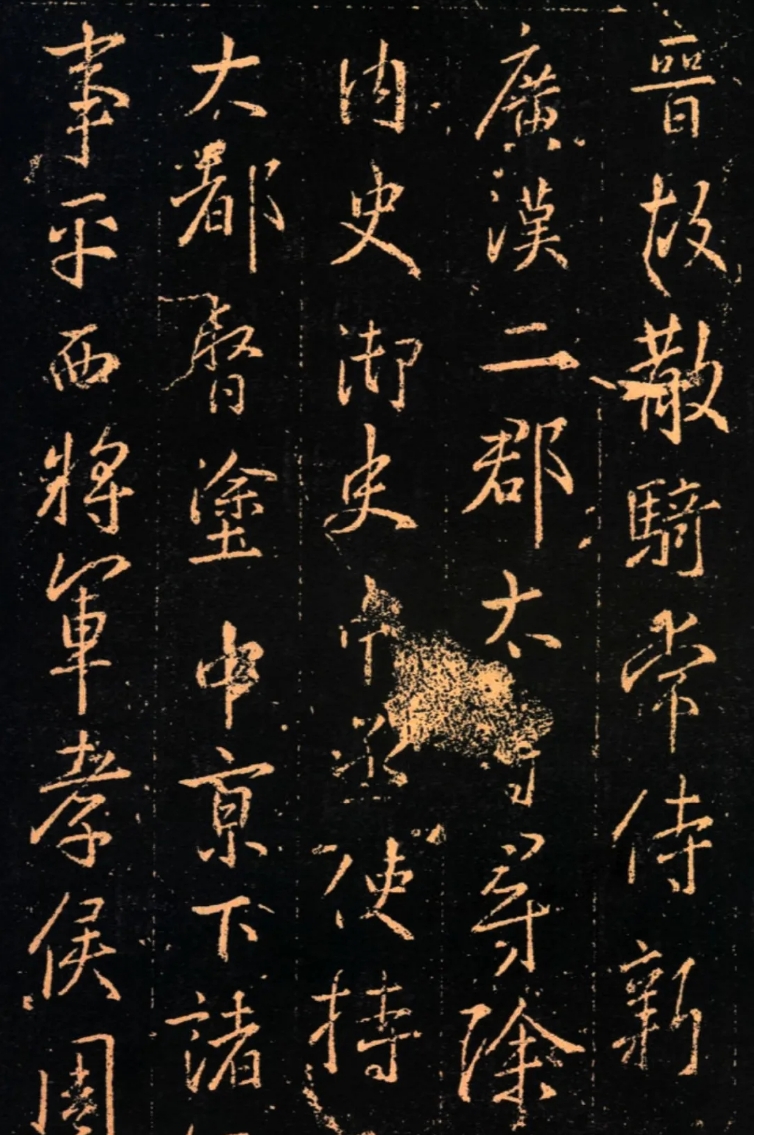 晉故散騎常侍新
廣漢二郡太守尋除
内史御史中丞使持
大都督塗中京下諸
事平西將軍孝侯周